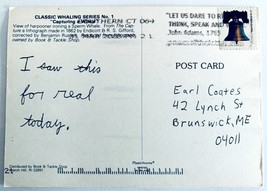 CLASSIC WHALING SERIES No. 1
"Capturing a Whale"
View of harpooner ironing a Sperm Whale. From The Cap-
ture a lithograph made in 1862 by Endicott & R. S. Gifford,
corrected by Benjamin Russell
owned by Book & Tackle Shop.
SOUTHERN CT 064
"LET US DARE TO READ,
THINK, SPEAK AND
John Adams, 1765
POST CARD
I saw this
for real
today.
Earl Coates
42 Lynch St
Brunswick, ME
04011
Distributed by Book & Tackle Shop
Watch Hill, RI 02891